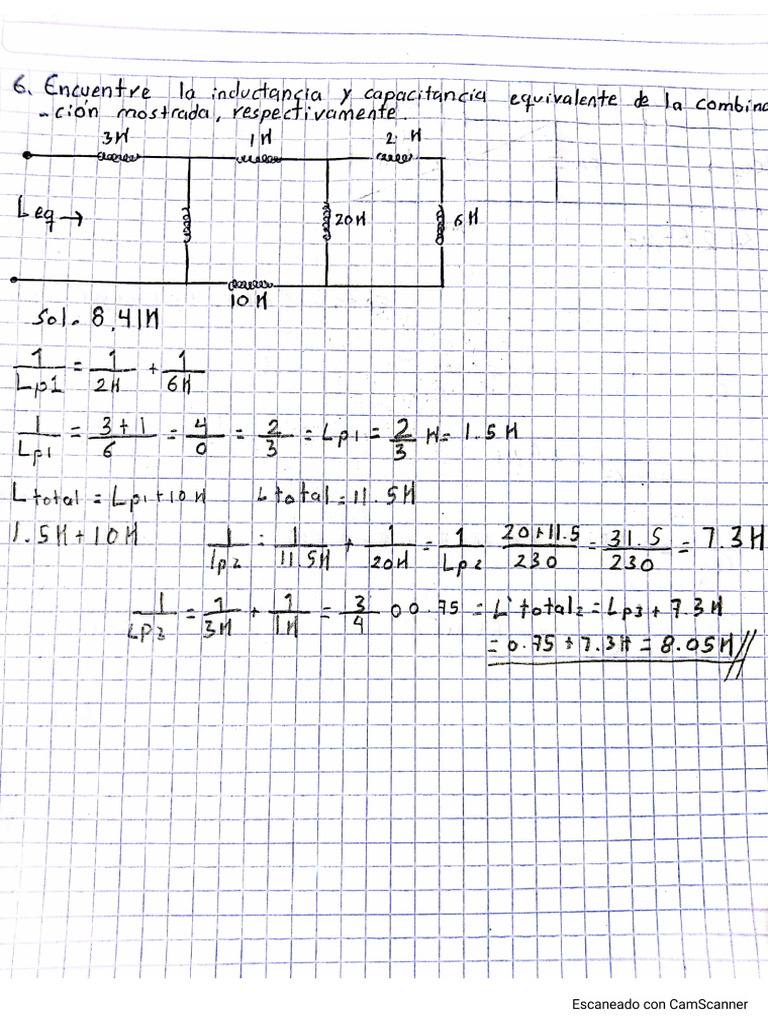 6. Encuentre la inductancia y capacitancia equivalente de la combina
-ción mostrada, respectivamente.
3H 1H 2 H
Leq→ 20H 6H
10 H
Sol. 8,41H
1/Lp1 = 1/2H + 1/6H
1/Lp1 = 3+1/6 = 4/0 = 2/3 = Lp1 = 2/3 H = 1.5H
Ltotal = Lp1+10H Ltotal = 11.5H
1.5H+10H 1/lp2 = 1/11.5H + 1/20H = 1/Lp2 20+11.5/230 = 31.5/230 = 7.3H
1/Lp3 = 1/3H + 1/1H = 3/4 00.75 = L total2 = Lp3 + 7.3H
= 0.75 + 7.3H = 8.05H//
Escaneado con CamScanner